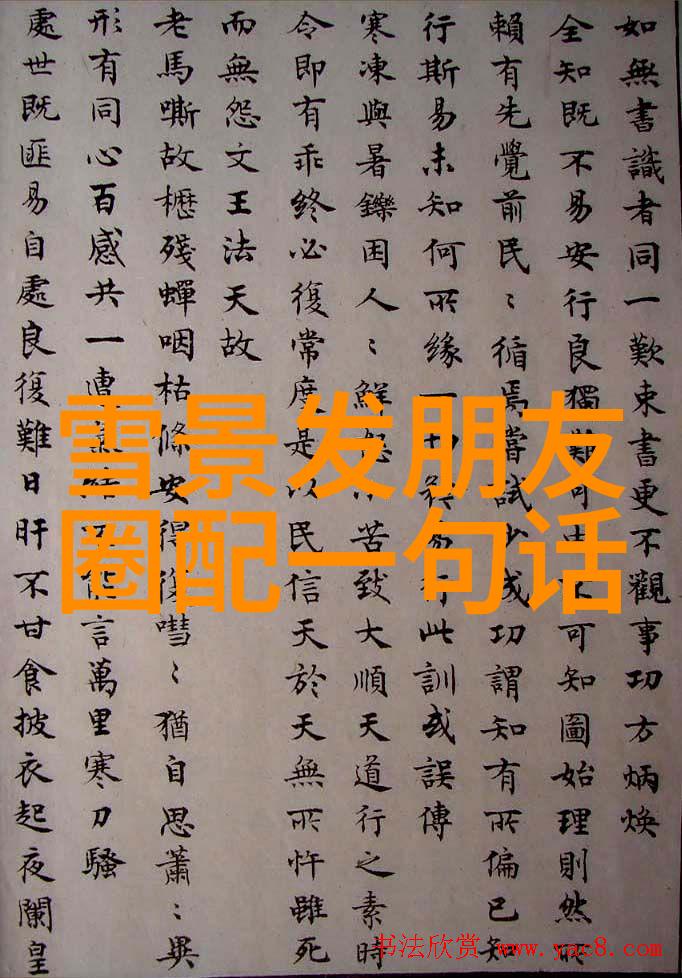 如無書識者同一歎束書更不觀事功方炳煥
全知既不易安行良獨難可由不可知圖始理則然所
賴有先覺前民〻循焉當試少成功謂知有所偏已知
行斯易未知何所緣一切後易行此訓或誤傳
寒凍與暑鑠困人〻鮮怨以苦致大順天道行之素時
令即有乖終必復常度是以民信天於天無所忤雖死
而無怨文王法天故
老馬嘶故櫪殘蟬咽枯條安得復嘒〻猶自思蕭〻異
形有同心百感共一遭氣結不能言萬里寒刀騷
處世既匪易自處良復難日旰不甘食披衣起夜闌皇
雪景发朋友
圈配一句话
书法欣赏 www.yac8.com